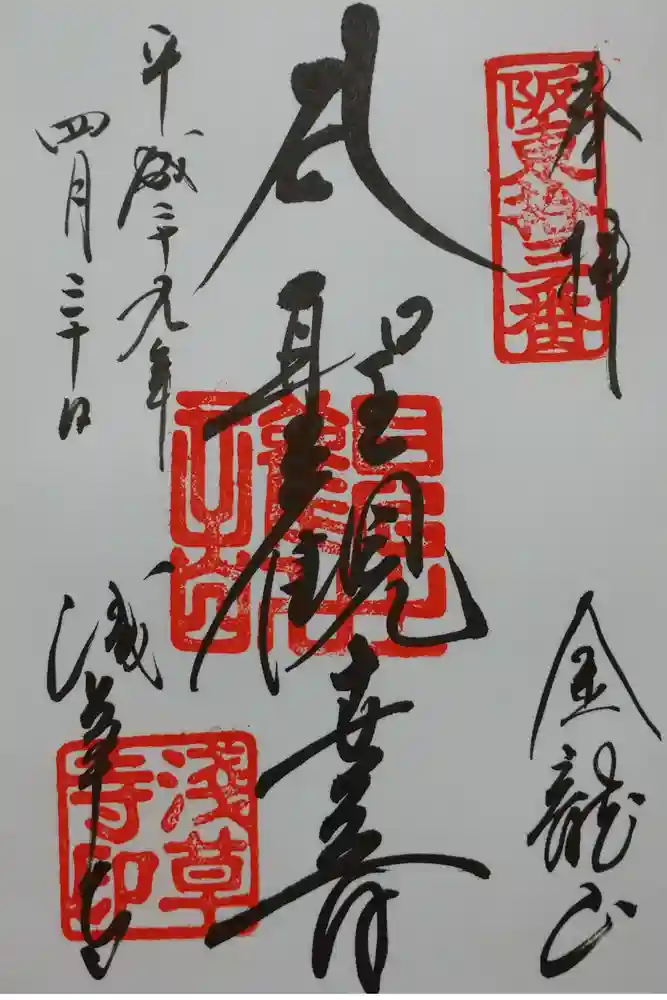 奉拝
阪東拾三番
金龍山
聖觀世音
平成二十九年
四月三十日
浅草寺
淺草
寺印